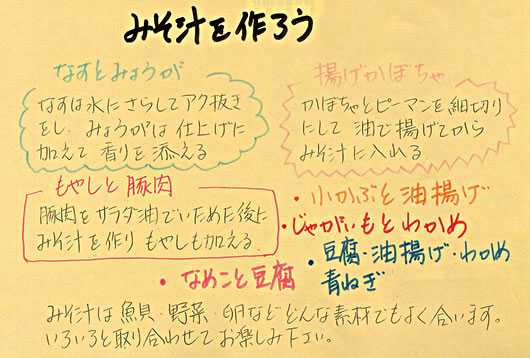 みそ汁を作ろう
なすとみょうが
なすは水にさらしてアク抜き
をし、みょうがは仕上げに
加えて香りを添える
揚げかぼちゃ
かぼちゃとピーマンを細切り
にして油で揚げてから
みそ汁に入れる
もやしと豚肉
豚肉をサラダ油でいためた後に
みそ汁を作りもやしも加える.
・小かぶと油揚げ
・じゃがいもとわかめ
・豆腐・油揚げ・わかめ
青ねぎ
・なめこと豆腐
みそ汁は魚貝・野菜・卵などどんな素材でもよく合います。
いろいろと取り合わせてお楽しみ下さい。